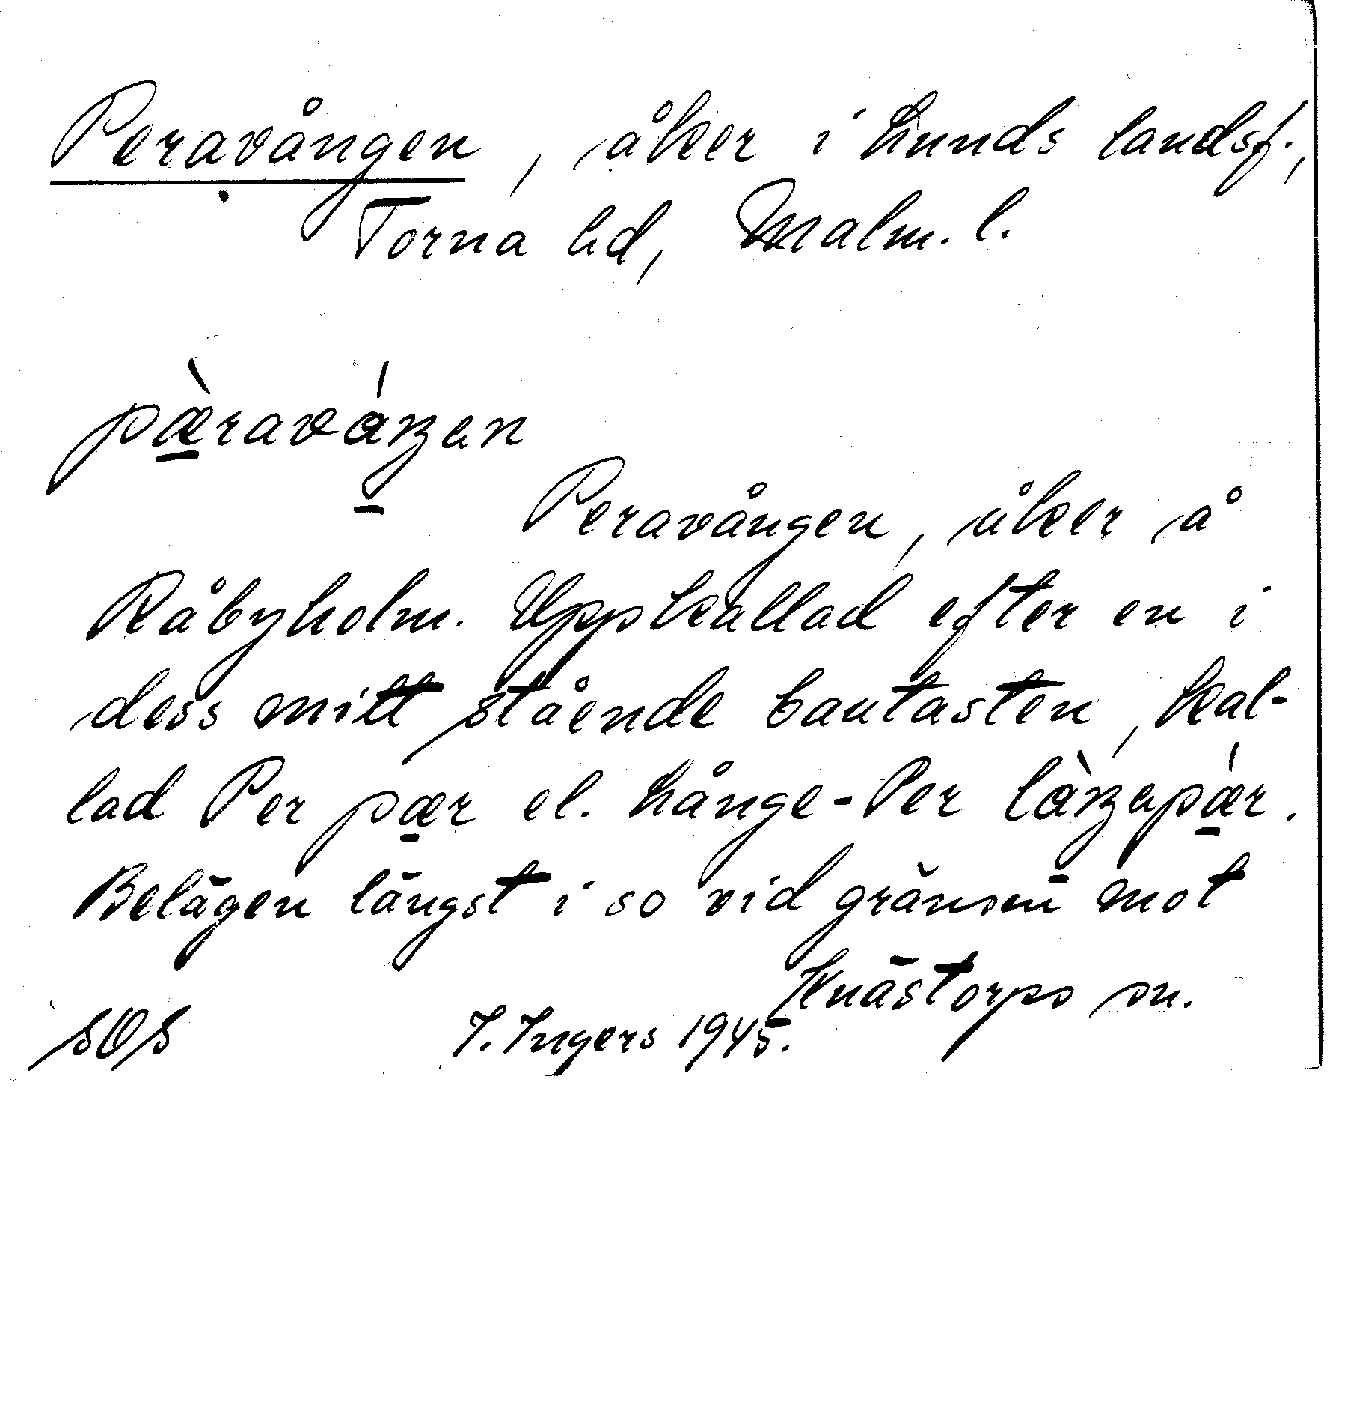 Peravången, åker i Lunds landsf.,
Torna hd, Malm. l.
pæ̀raváŋen
Peravången, åker å
Råbyholm. Uppkallad efter en i
dess mitt stående bautasten, kal-
lad Per pær el. Långe-Per làŋapǽr.
Belägen längst i so vid gränsen mot
Knästorps sn.
SOS I. Ingers 1945.